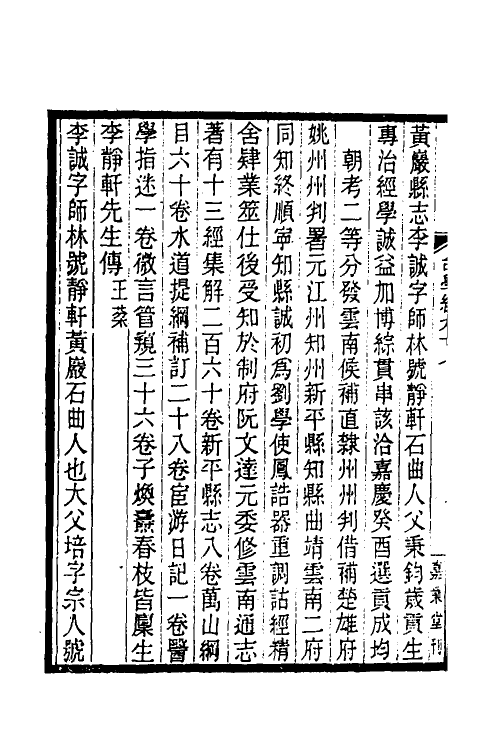 黃巖縣志李誠字師林號靜軒石曲人父秉鈞歲貢生
專治經學誠益加博綜貫串該洽嘉慶癸酉選貢成均
朝考二等分發雲南候補直隸州州判借補楚雄府
姚州州判署元江州知州新平縣知縣曲靖雲南二府
同知終順寧知縣誠初爲劉學使鳳誥器重調詁經精
舍肄業筮仕後受知於制府阮文達元委修雲南通志
著有十三經集解二百六十卷新平縣志八卷萬山綱
目六十卷水道提綱補訂二十八卷宦游日記一卷醫
學指迷一卷微言管窺三十六卷子煥燾春枝皆廩生
李靜軒先生傳 王棻
李誠字師林號靜軒黃巖石曲人也大父培字宗人號
嘉業堂刊